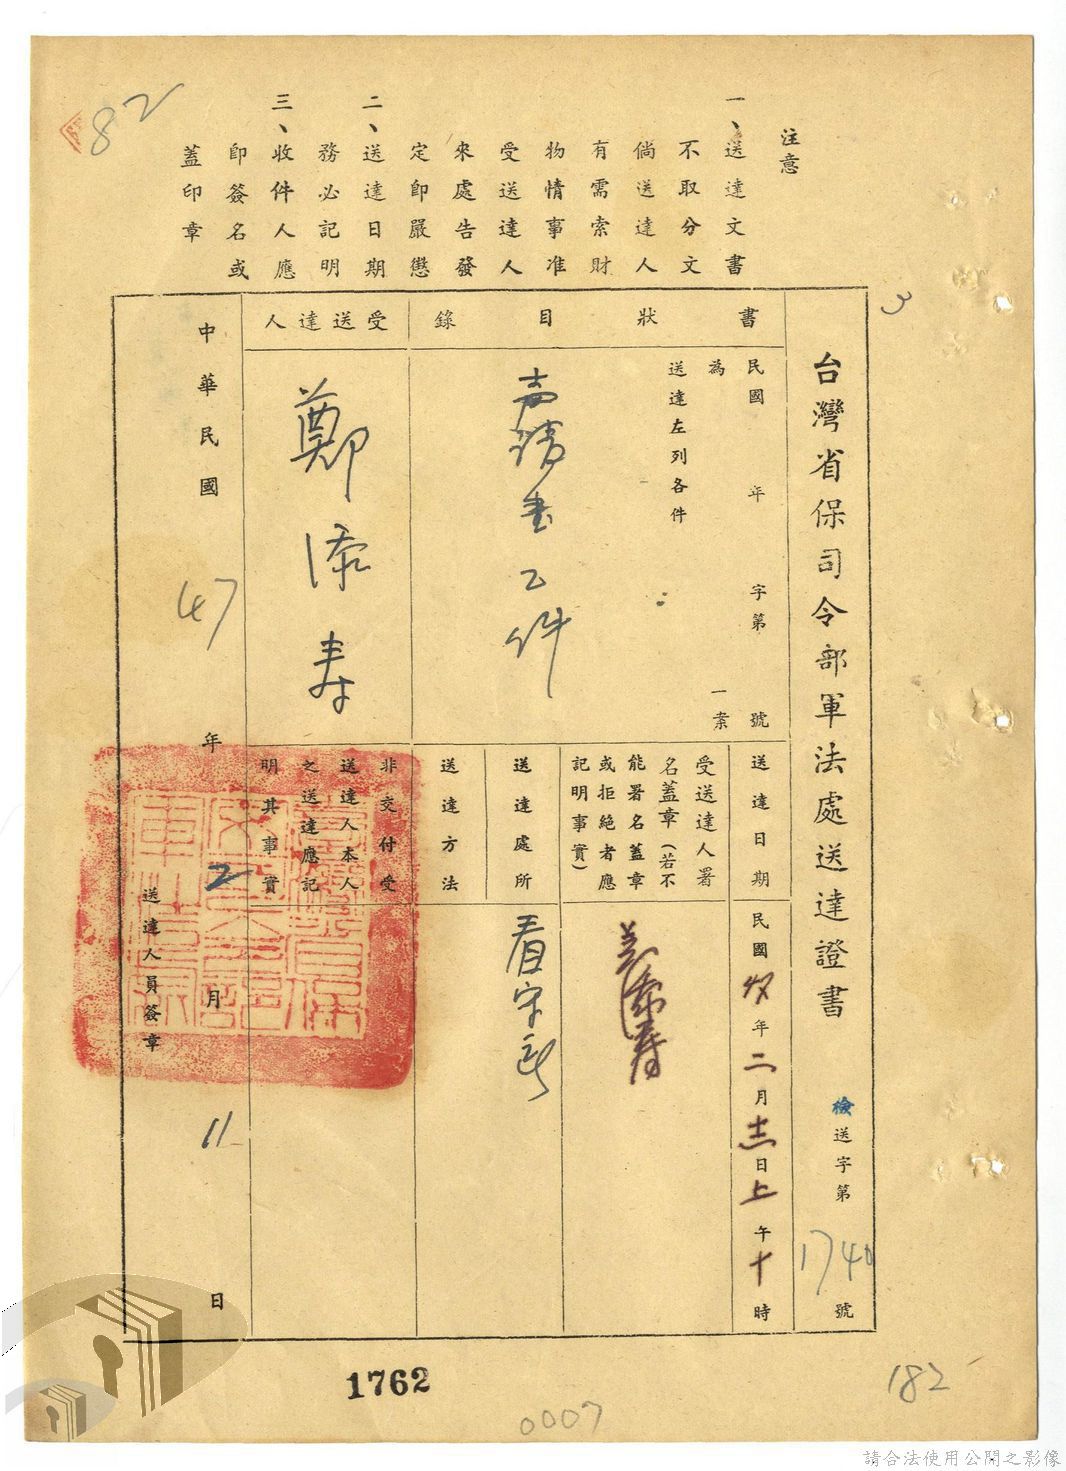 82
注意
一、送達文書
不取分文
倘送達人
有需索財
物情事准
受送達人
來處告發
定即嚴懲
二、送達日期
務必記明
三、收件人應
即簽名或
蓋印章
3
台灣省保司令部軍法處送達證書
檢送字第1740號
書狀目錄
民國 年 字第 號
為 一案
送達左列各件
聲請書乙件
受送達人
鄭添寿
送達日期
民國47年二月十一日上午十時
受送達人署
名蓋章(若不
能署名蓋章
或拒絕者應
記明事實)
送達處所
看守所
送達方法
非交付受
送達人本人
之送達應記
明其事實
中華民國47年2月11日
送達人員簽章
1762
0007
182
請合法使用公開之影像